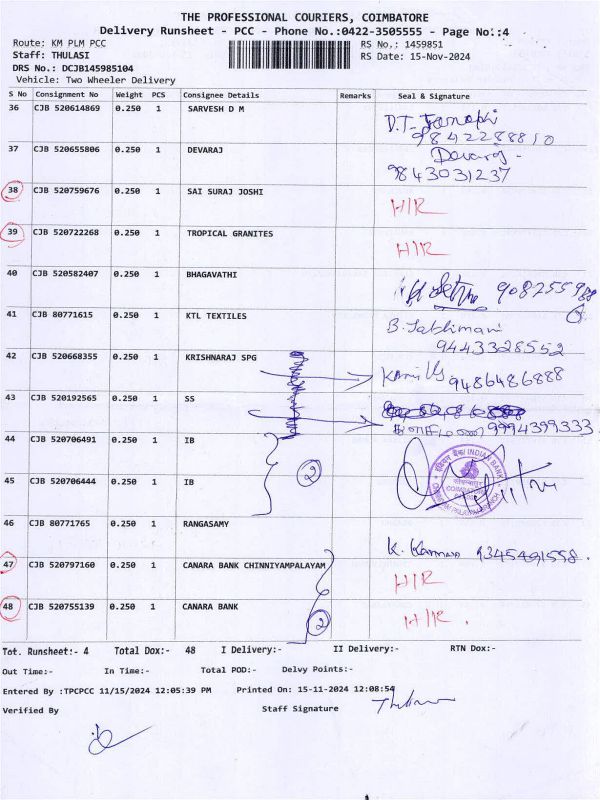 THE PROFESSIONAL COURIERS, COIMBATORE
Delivery Runsheet - PCC - Phone No.:0422-3505555 - Page No.:4
Route: KM PLM PCC
RS No.: 1459851
Staff: THULASI
RS Date: 15-Nov-2024
DRS No.: DCJB145985104
Vehicle: Two Wheeler Delivery
S No Consignment No Weight PCS Consignee Details Remarks Seal & Signature
36 CJB 520614869 0.250 1 SARVESH D M
9842288810
37 CJB 520655806 0.250 1 DEVARAJ Devaraj -
9843031237
38 CJB 520759676 0.250 1 SAI SURAJ JOSHI H/R
39 CJB 520722268 0.250 1 TROPICAL GRANITES H/R
40 CJB 520582407 0.250 1 BHAGAVATHI
41 CJB 80771615 0.250 1 KTL TEXTILES
9443328552
42 CJB 520668355 0.250 1 KRISHNARAJ SPG 9486486888
43 CJB 520192565 0.250 1 SS
9994399333
44 CJB 520706491 0.250 1 IB
INDIAN BANK
2
45 CJB 520706444 0.250 1 IB
46 CJB 80771765 0.250 1 RANGASAMY
K. 9345491558.
47 CJB 520797160 0.250 1 CANARA BANK CHINNIYAMPALAYAM H/R
48 CJB 520755139 0.250 1 CANARA BANK 2 H/R.
Tot. Runsheet:- 4 Total Dox:- 48 I Delivery:- II Delivery:- RTN Dox:-
Out Time:- In Time:- Total POD:- Delvy Points:-
Entered By :TPCPCC 11/15/2024 12:05:39 PM Printed On: 15-11-2024 12:08:54
Verified By Staff Signature